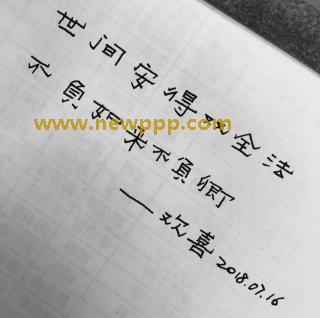 世间安得双全法
不负如来不负卿
——欢喜
2018.07.16
www.newppp.com